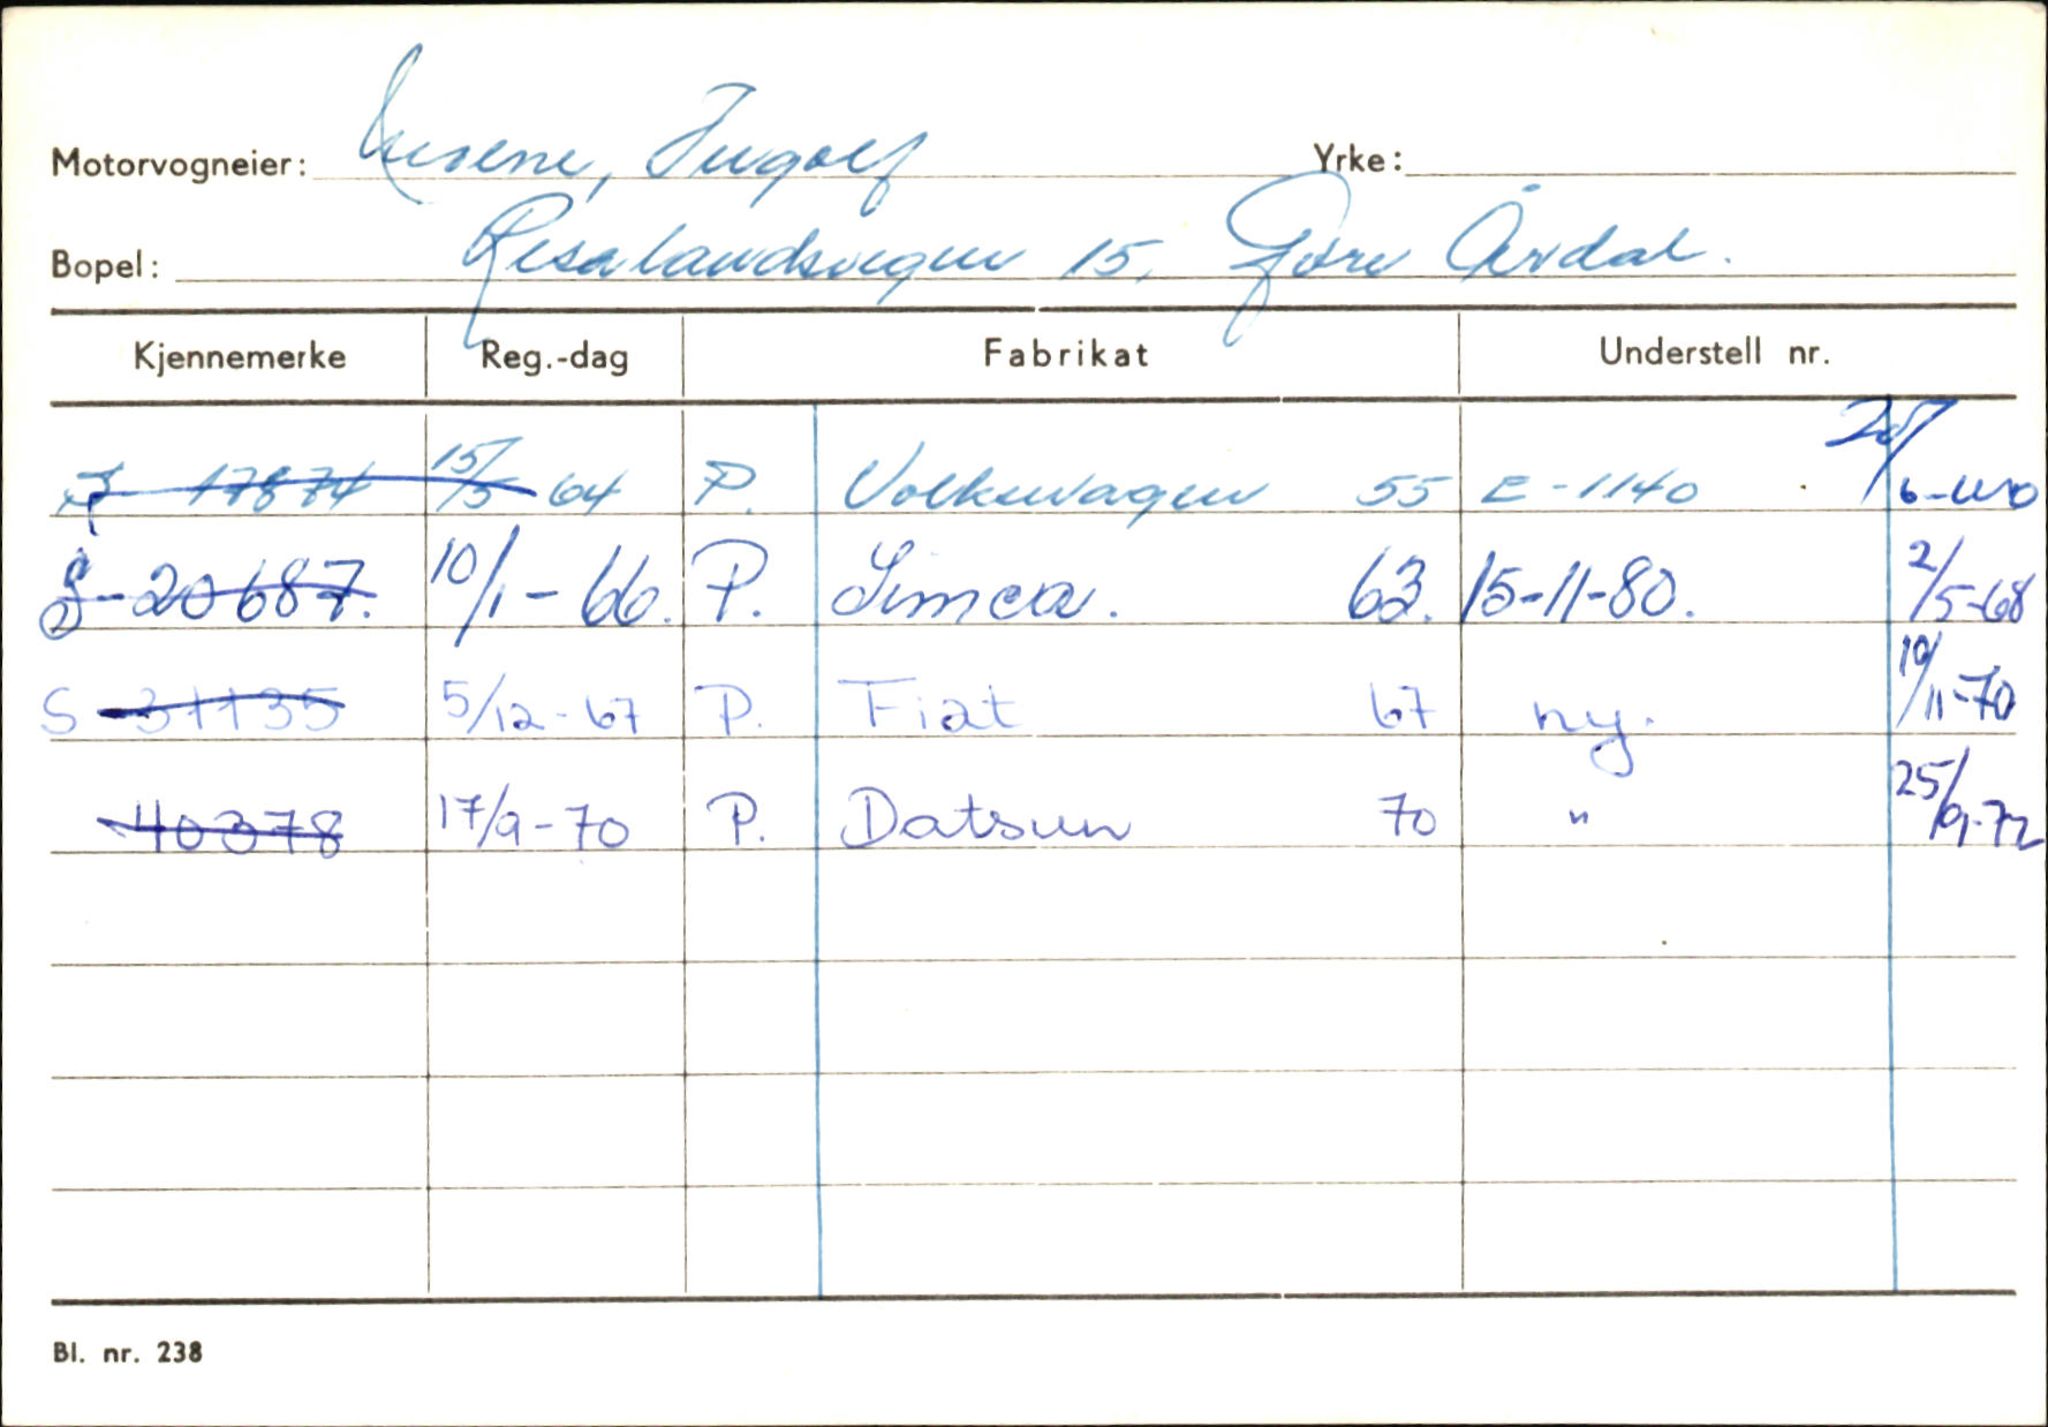 Motorvogneier: Ingolf Yrke:
Bopel: 15, Øvre Årdal.
Kjennemerke Reg.-dag Fabrikat Understell nr.
S 17874 15/5 64 P. Volkswagen 55 E-1140
S-20687. 10/1-66. P. Simca. 63. 15-11-80. 2/5-68
S 31135 5/12-67 P. Fiat 67 ny. 10/11-70
40378 17/9-70 P. Datsun 70 " 25/9-72
Bl. nr. 238